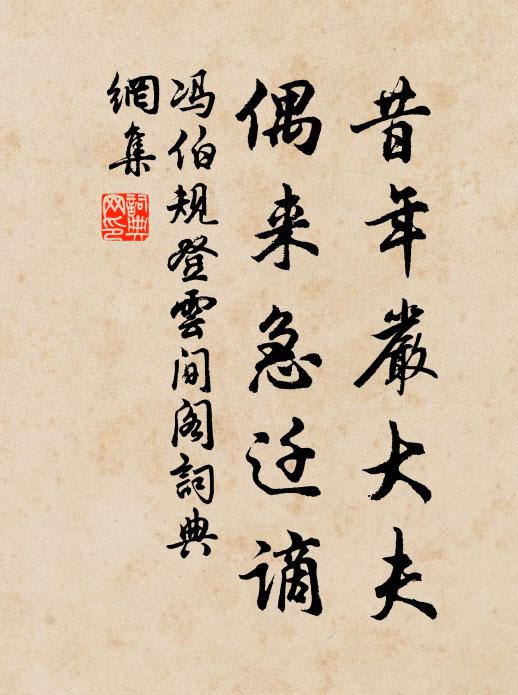 昔年嚴大夫
偶来急迁謫
冯伯規登雲间阁詞典
網集
詞典
网印